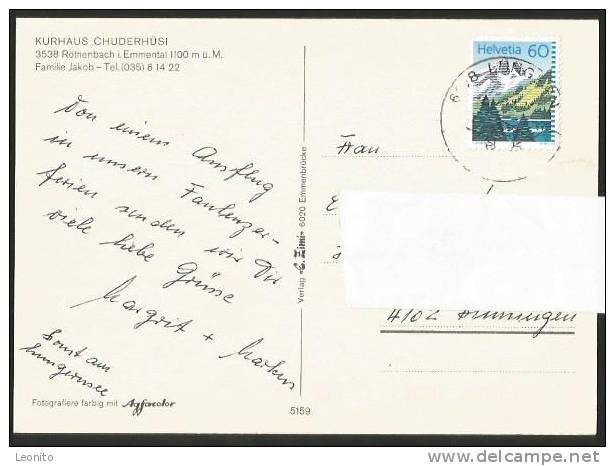 KURHAUS CHUDERHÜSI
3538 Röthenbach i. Emmental 1100 m ü. M.
Familie Jakob – Tel. (035) 6 14 22
Von einem Ausflug
in unsern Faulenzer-
ferien senden wir Dir
viele liebe Grüsse
Margrit + Markus
Sonst am
Lungernsee
Fotografiere farbig mit Agfacolor
5159
Verlag «E. Zimi» 6020 Emmenbrücke
Helvetia 60
Frau
4102 Binningen
Leonito
www.delcampe.net